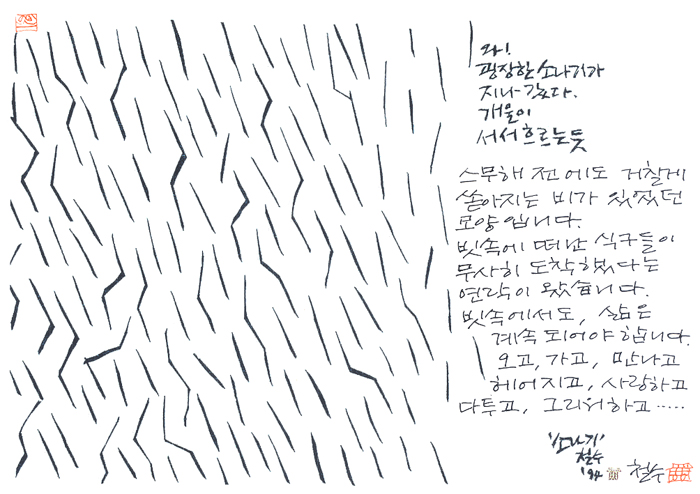 와!
굉장한 소나기가
지나갔다.
개울이
서서 흐르는 듯
스무해 전에도 거칠게
쏟아지는 비가 있었던
모양입니다.
빗속에 떠난 식구들이
무사히 도착했다는
연락이 왔습니다.
빗속에서도, 삶은
계속 되어야 합니다.
오고, 가고, 만나고
헤어지고, 사랑하고
다투고, 그리워하고……
'소나기'
철수
'94
철수